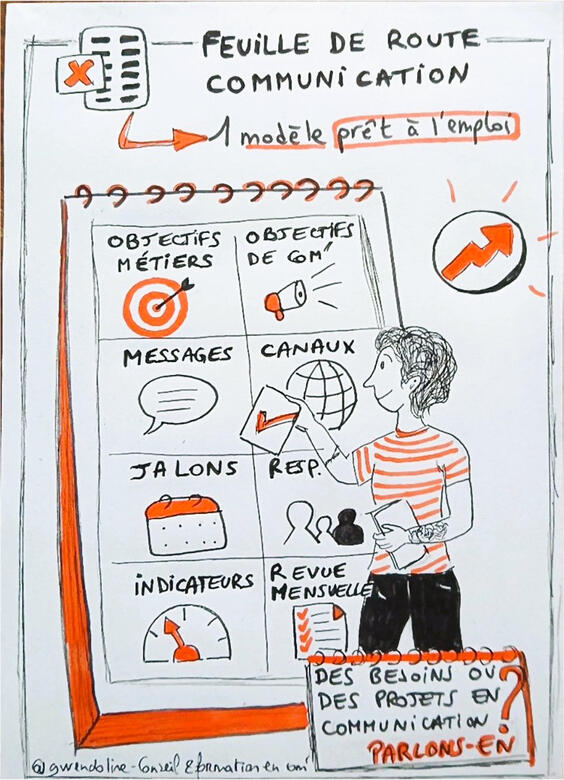 FEUILLE DE ROUTE
COMMUNICATION
1 modèle prêt à l'emploi
OBJECTIFS
MÉTIERS
OBJECTIFS
DE COM'
MESSAGES
CANAUX
JALONS
RESP.
INDICATEURS
REVUE
MENSUELLE
DES BESOINS OU
DES PROJETS EN
COMMUNICATION ?
PARLONS-EN
@gwendoline-Conseil & formation en com'